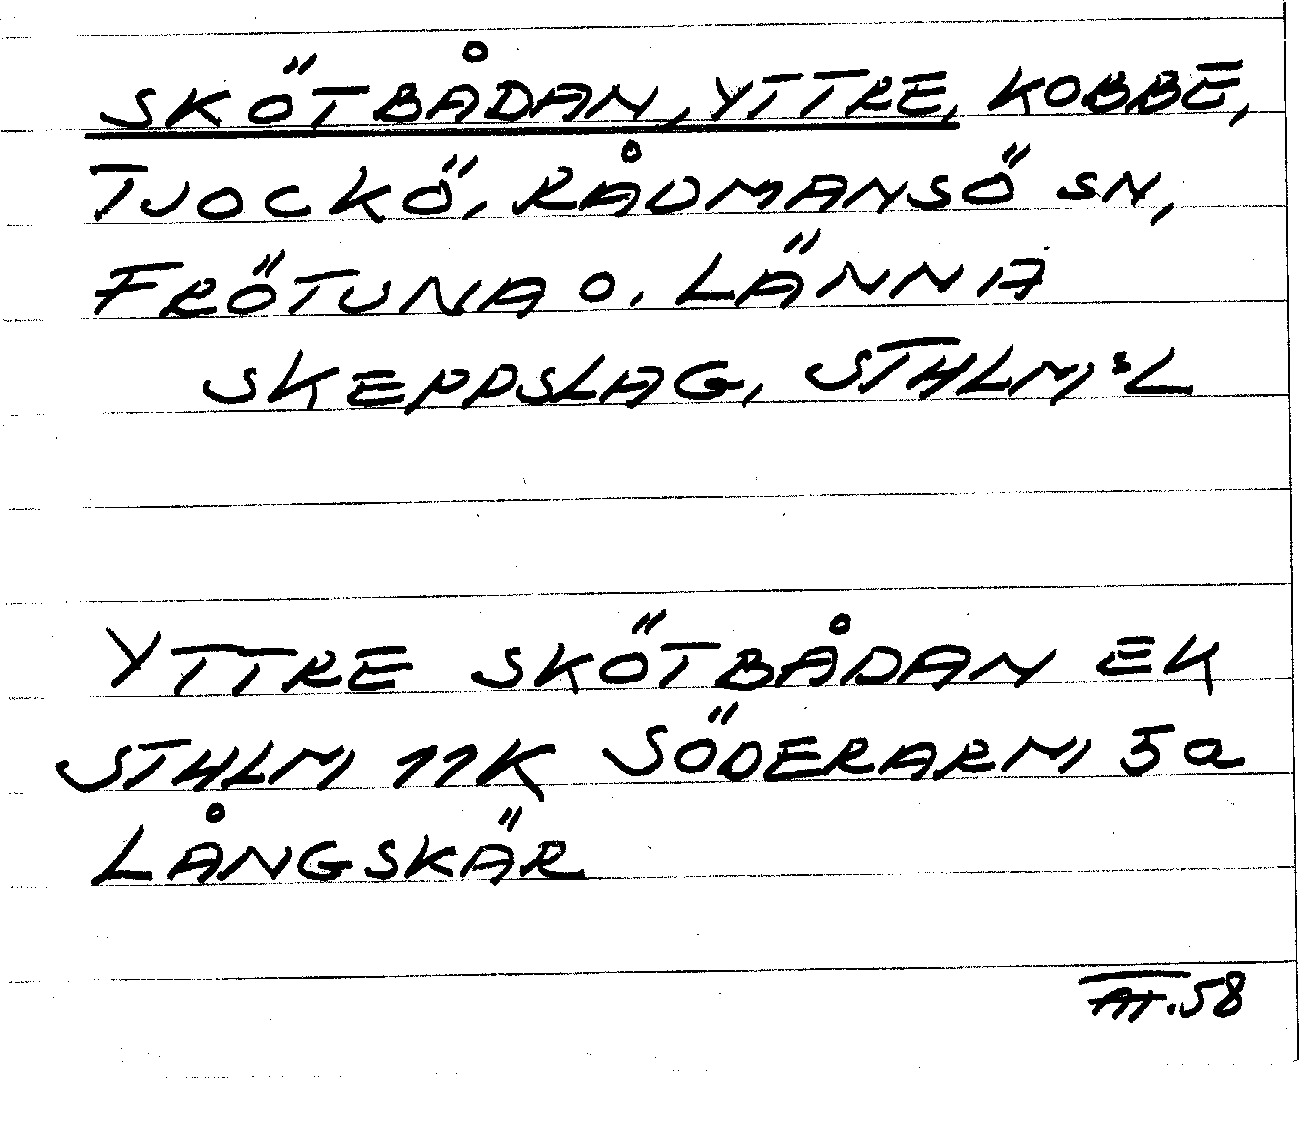 SKÖTBÅDAN, YTTRE, KOBBE,
TJOCKÖ, RÅDMANSÖ SN,
FRÖTUNA O. LÄNNA
SKEPPSLAG, STHLM:S L
YTTRE SKÖTBÅDAN EK
STHLM 11K SÖDERARM 5a
LÅNGSKÄR
58